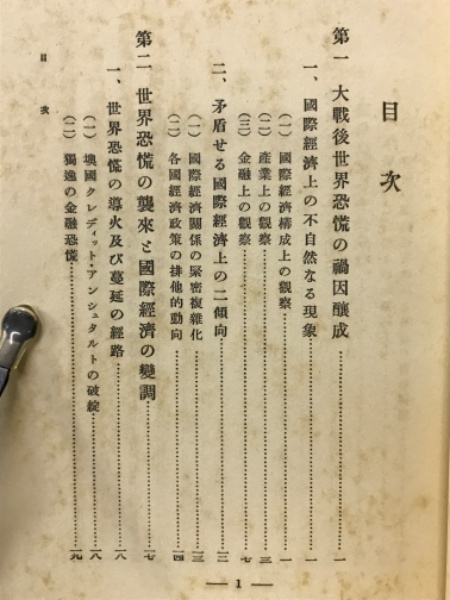 目次
第一 大戰後世界恐慌の禍因釀成……一
一、國際經濟上の不自然なる現象……一
(一) 國際經濟構成上の觀察……一
(二) 產業上の觀察……三
(三) 金融上の觀察……七
二、矛盾せる國際經濟上の二傾向……三
(一) 國際經濟關係の緊密複雜化……三
(二) 各國經濟政策の排他的動向……一四
第二 世界恐慌の襲來と國際經濟の變調……一七
一、世界恐慌の導火及び蔓延の經路……一八
(一) 墺國クレディット・アンシュタルトの破綻……一八
(二) 獨逸の金融恐慌……一九
目次
— 1 —